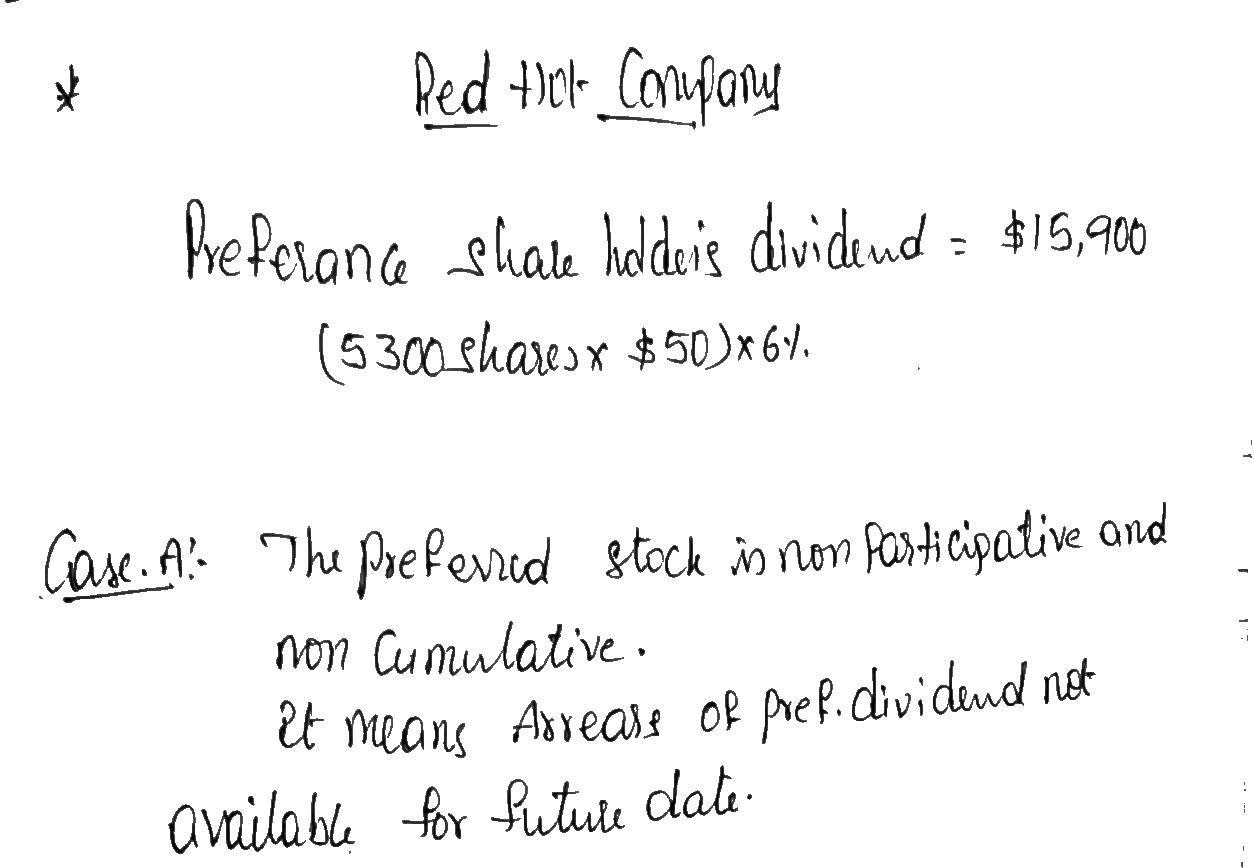 * Red Hot Company
Preferance share holders dividend = $15,900
(5300 shares x $50) x 6%.
Case. A:- The preferred stock is non Participative and
non Cumulative.
It means Arrears of pref. dividend not
available for future date.